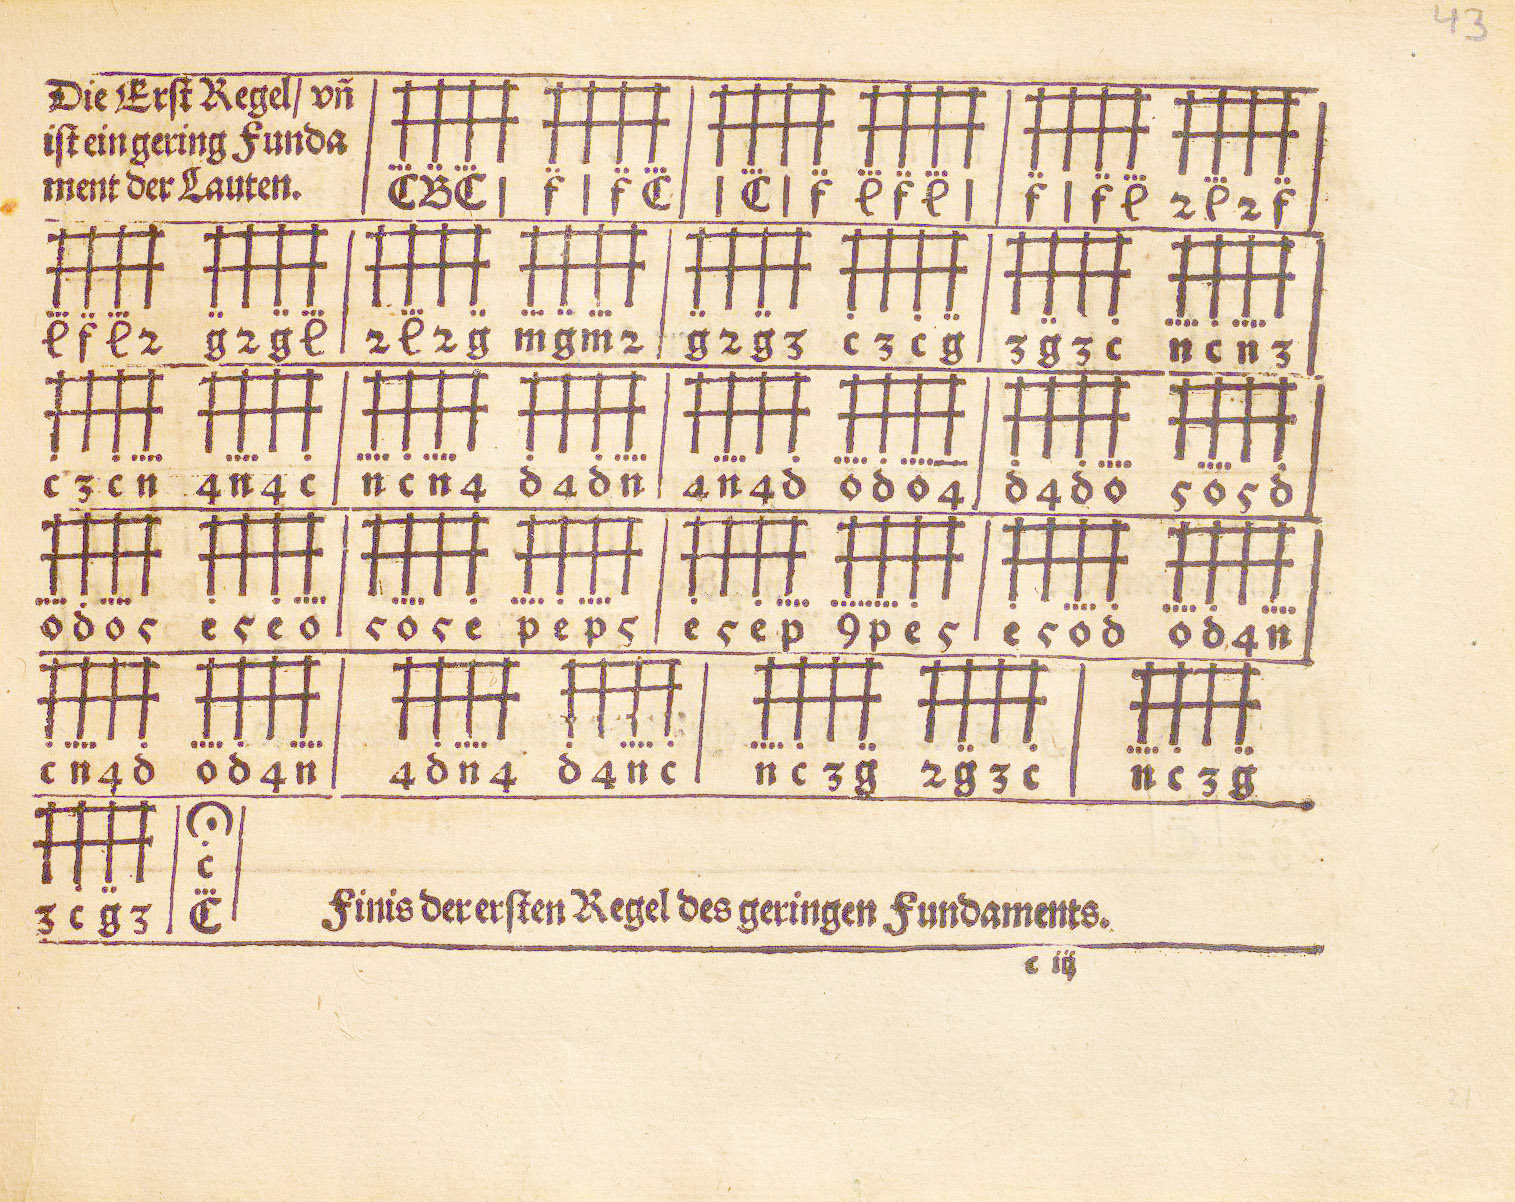 43
Die Erst Regel/ vñ
ist ein gering Funda
ment der Lauten.
C B C | f | f C | C | f l f l | f | f l 2 l 2 f
l f l 2 g 2 g l 2 l 2 g m g m 2 g 2 g 3 c 3 c g 3 g 3 c n c n 3
c 3 c n 4 n 4 c n c n 4 d 4 d n 4 n 4 d o d o 4 d 4 d o 5 o 5 d
o d o 5 e 5 e o 5 o 5 e p e p 5 e 5 e p 9 p e 5 e 5 o d o d 4 n
c n 4 d o d 4 n 4 d n 4 d 4 n c n c 3 g 2 g 3 c n c 3 g
c
3 c g 3 C
Finis der ersten Regel des geringen Fundaments.
c iij